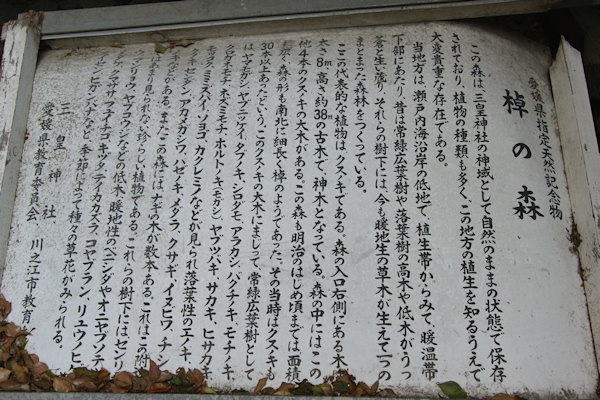 愛媛県指定天然記念物
棹の森
この森は三皇神社の神域として自然のままの状態で保存
されており、植物の種類も多く、この地方の植生を知るうえで
大変貴重な存在である。
当地方は、瀬戸内海沿岸の低地で、植生帯からみて、暖温帯
下部にあたり、昔は常緑広葉樹や落葉樹の高木や低木がうっ
蒼と生い茂り、それらの樹下には、今も暖地生の草木が生えて一つの
まとまった森林をつくっている。
この代表的な植物はクスノキである。森の入口右側にある木は
太さ8m高さ約38mの古木で、神木となっている。森の中にはこの
他4本のクスノキの大木がある。この森も明治のはじめ頃までは面積
も広く森の形も南北に細長く棹のようであった。その当時はクスノキも
30本以上あったという。このクスノキの大木にまじって、常緑広葉樹として
はヤマモガシ、ヤブニッケイ、タブノキ、シロダモ、アラカシ、バクチノキ、モチノキ、
クロガネモチ、ネズミモチ、ホルトノキ、ミミズバイ、ヤブツバキ、サカキ、ヒサカキ
モッコク、ミミズバイ、ソヨゴ、カクレミノなどが見られ、落葉性のエノキ、
ムクノキ、センダン、アカメガシワ、ハゼノキ、メダラ、クサギ、イヌビワ、チシャ
ノキなどがある。またこの森には、ナギの木が数本ある。これはこの附近
にはあまり見られない珍らしい植物である。これらの樹下にはセンリョウ、
マンリョウ、ヤブコウジなどの低木、暖地性のベニシダやオニヤブソテツ
サネカズラ、フユイチゴ、キヅタ、テイカカズラ、コヤブラン、リュウノヒゲ、
ヒガンバナなど、季節によって種々の草花がみられる。
三皇神社
愛媛県教育委員会、川之江市教育